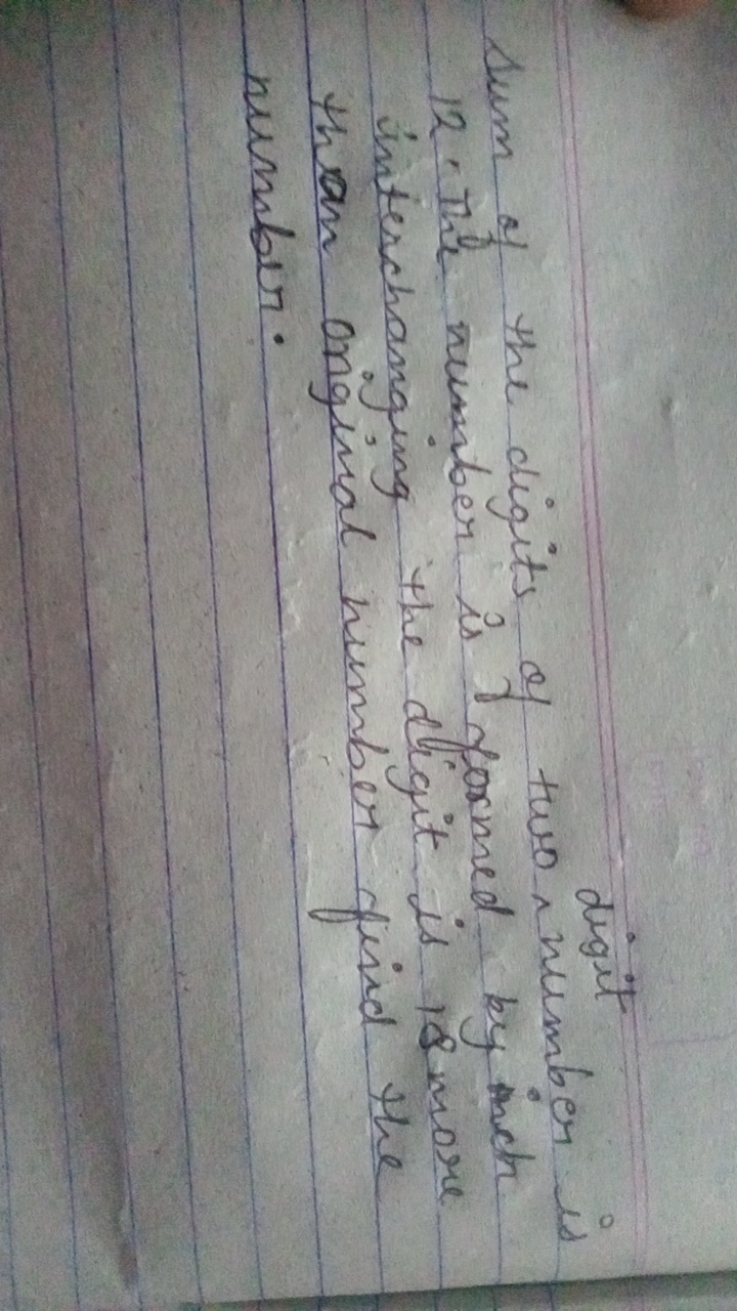 digit
Sum of the digits of two ^ number is
12. The number is formed by inch
interchanging the digit is 18 more
than original number find the
number.